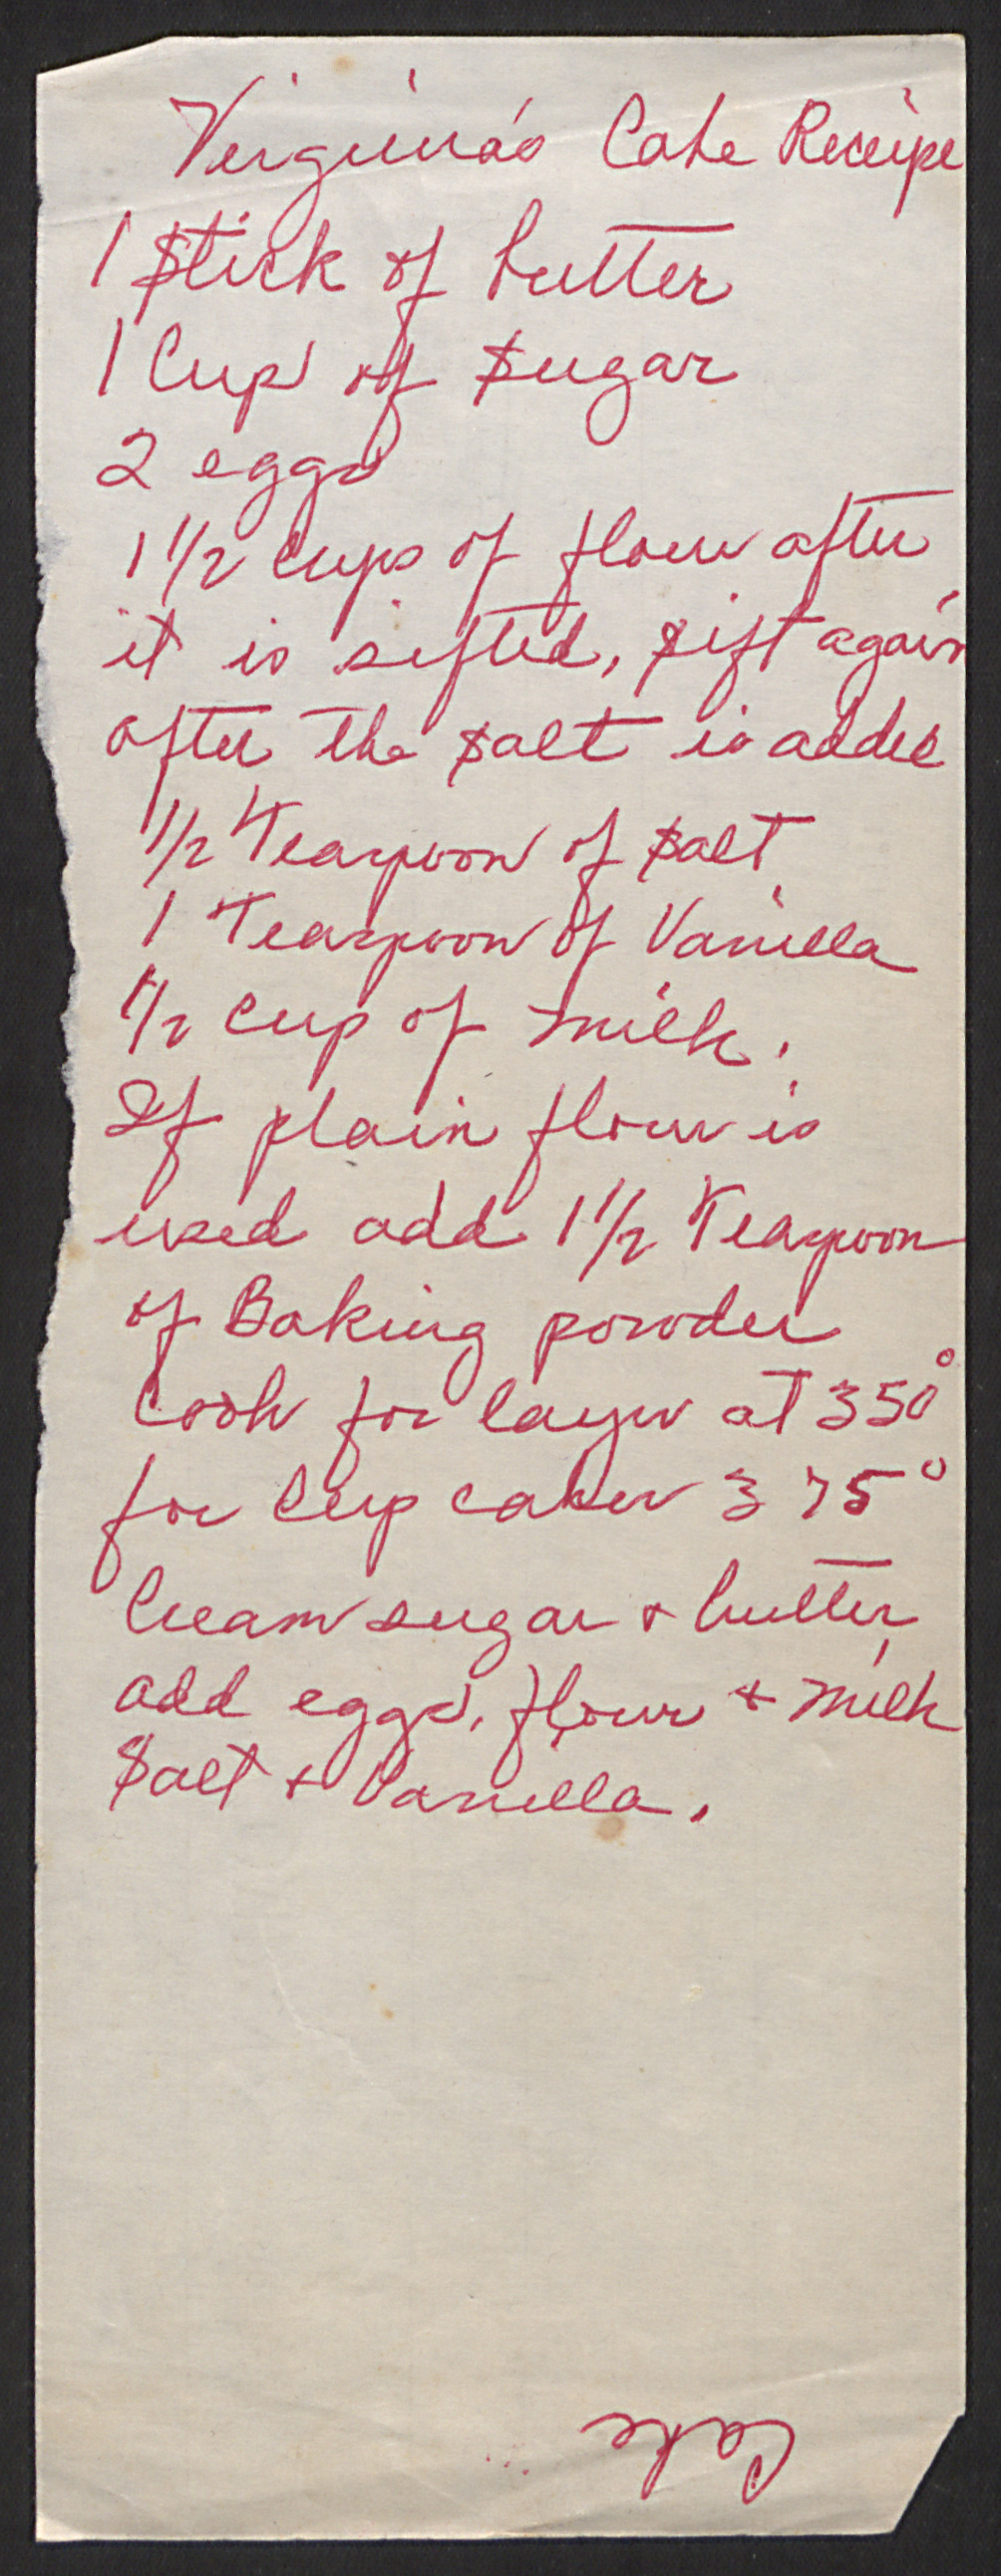 Virginia's Cake Receipe
1 Stick of butter
1 Cup of Sugar
2 eggs
1 1/2 cups of flour after
it is sifted, sift again
after the Salt is added
1/2 Teaspoon of Salt
1 Teaspoon of Vanilla
1/2 cup of milk.
If plain flour is
used add 1 1/2 Teaspoon
of Baking powder
Cook for layer at 350°
for Cup cakes 375°
Cream sugar + butter,
add eggs, flour + milk
Salt + Vanilla.
Cake